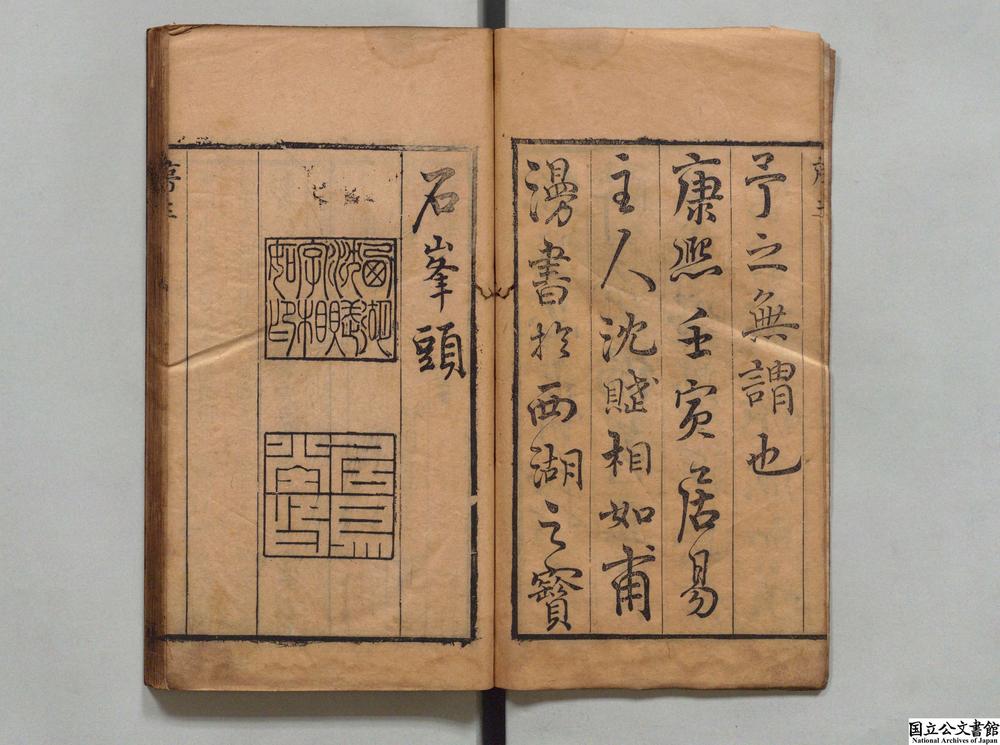 予之無謂也
康熙壬寅居易
主人沈賦相如甫
漫書於西湖之寶
石峯頭
沈賦字相如印
國立公文書館
National Archives of Japan